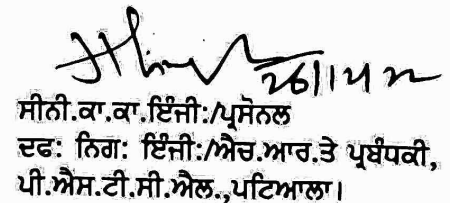 ਸੀਨੀ.ਕਾ.ਕਾ.ਇੰਜੀ:/ਪ੍ਰਸੋਨਲ
ਦਫ: ਨਿਗ: ਇੰਜੀ:/ਐਚ.ਆਰ.ਤੇ ਪ੍ਰਬੰਧਕੀ,
ਪੀ.ਐਸ.ਟੀ.ਸੀ.ਐਲ.,ਪਟਿਆਲਾ।